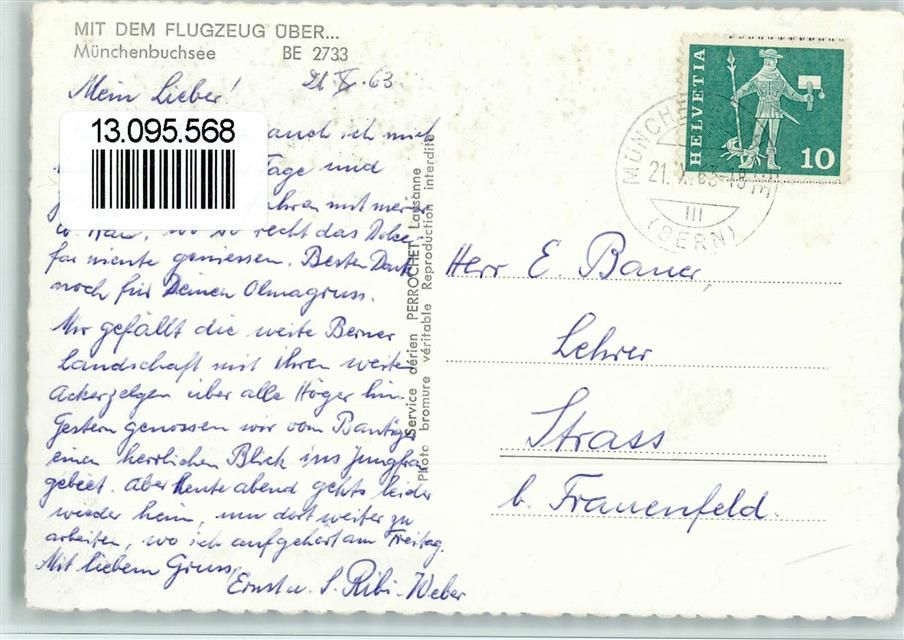 MIT DEM FLUGZEUG ÜBER...
Münchenbuchsee BE 2733
21. X. 63.
Mein Lieber!
13.095.568
auch ich mich
Tage und
mit meiner
so recht das Dolce
far niente geniessen. Besten Dank
noch für Deinen Olmagruss.
Mir gefällt die weite Berner
Landschaft mit ihren weiten
Ackerzelgen über alle Höger hin.
Gestern genossen wir vom Bantiger
einen herrlichen Blick ins Jungfrau
gebiet. Aber heute abend gehts leider
wieder heim, um dort weiter zu
arbeiten, wo ich aufgehört am Freitag.
Mit liebem Gruss,
Ernst u. S. Ribi-Weber
Service aérien PERROCHET Lausanne
Photo bromure véritable Reproduction interdite
HELVETIA
10
21. X. 63-18
III
(BERN)
Herr E. Bauer,
Lehrer
Strass
b. Frauenfeld.